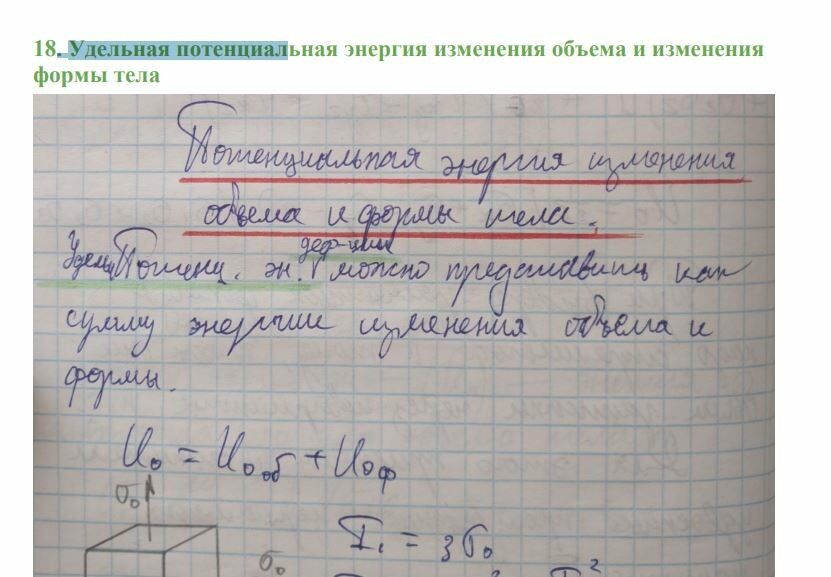 18. Удельная потенциальная энергия изменения объема и изменения
формы тела
Потенциальная энергия изменения
объема и формы тела.
деф-ции
Удельн Потенц. эн. можно представить как
сумму энергии изменения объема и
формы.
U₀ = U₀об + U₀ф
σ₀
I₁ = 3σ₀
σ₀